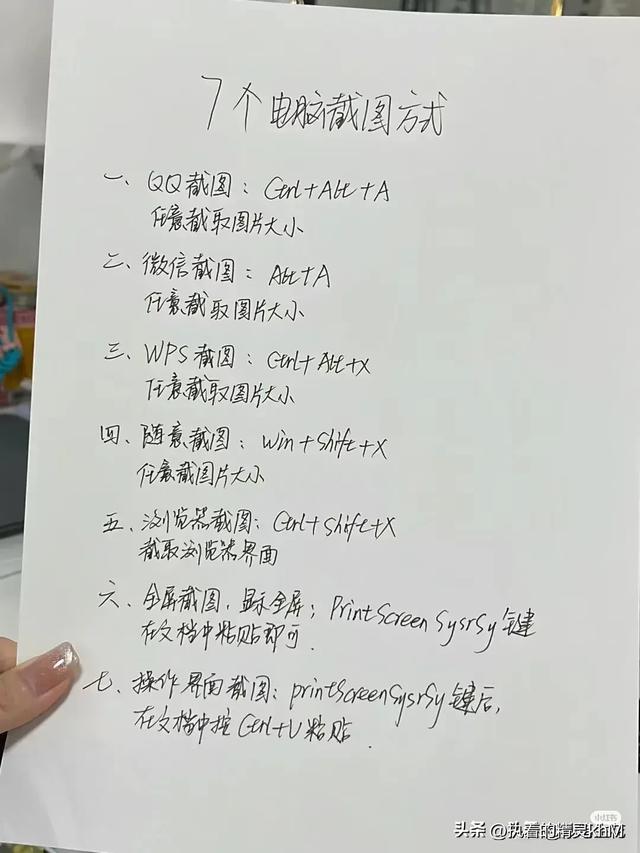 7个电脑截图方式
一、QQ截图：Ctrl+Alt+A
任意截取图片大小
二、微信截图：Alt+A
任意截取图片大小
三、WPS截图：Ctrl+Alt+X
任意截取图片大小
四、随意截图：Win+Shift+X
任意截图片大小
五、浏览器截图：Ctrl+Shift+X
截取浏览器界面
六、全屏截图，显示全屏；PrintScreenSysrSy键
在文档中粘贴即可.
七、操作界面截图：printScreenSysrSy键后，
在文档中按Ctrl+V粘贴.
小红书
头条 @执着的精灵